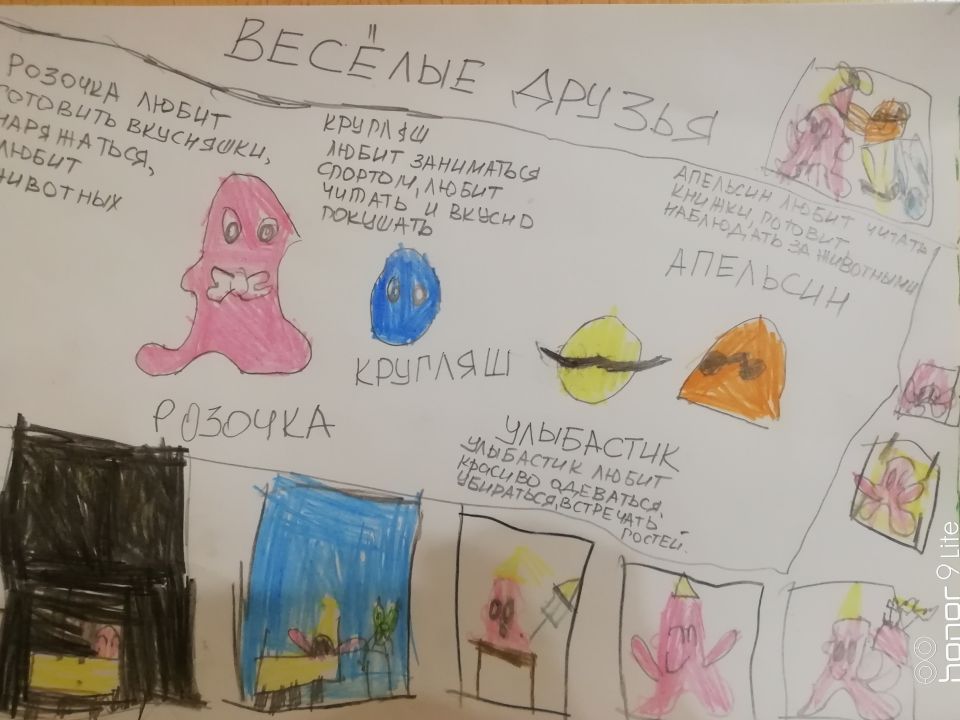 ВЕСЁЛЫЕ ДРУЗЬЯ
РОЗОЧКА ЛЮБИТ
ГОТОВИТЬ ВКУСНЯШКИ,
НАРЯЖАТЬСЯ,
ЛЮБИТ
ЖИВОТНЫХ
КРУГЛЯШ
ЛЮБИТ ЗАНИМАТЬСЯ
СПОРТОМ, ЛЮБИТ
ЧИТАТЬ И ВКУСНО
ПОКУШАТЬ
АПЕЛЬСИН ЛЮБИТ ЧИТАТЬ
КНИЖКИ, ГОТОВИТ,
НАБЛЮДАТЬ ЗА ЖИВОТНЫМИ
АПЕЛЬСИН
КРУГЛЯШ
РОЗОЧКА
УЛЫБАСТИК
УЛЫБАСТИК ЛЮБИТ
КРАСИВО ОДЕВАТЬСЯ,
УБИРАТЬСЯ, ВСТРЕЧАТЬ
ГОСТЕЙ.
honor 9 Lite